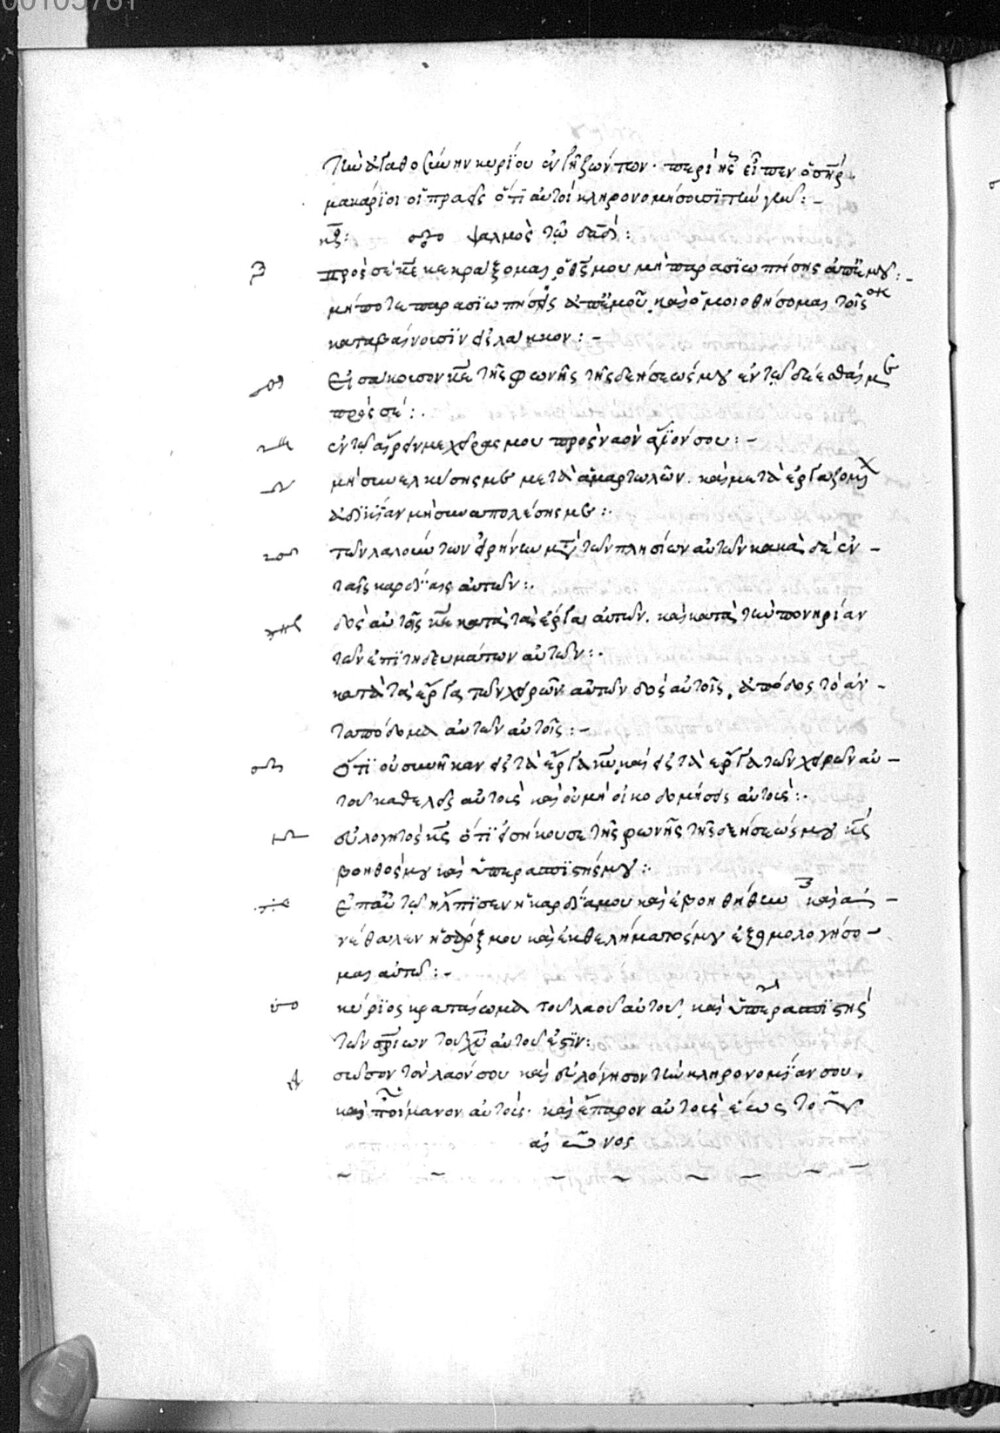 00105761
τὴν ἀγαθοσύνην κυρίου ἐν γῇ ζώντων. περὶ ἧς εἶπεν ὁ σὴρ.
μακάριοι οἱ πραεῖς ὅτι αὐτοὶ κληρονομήσουσι τὴν γῆν:-
κζ: ψαλμὸς τῶ δαδ:
πρὸς σὲ κε κεκράξομαι ὁ θς μου μὴ παρασιωπήσης ἀπ' ἐμου:-
μήποτε παρασιωπήσης ἀπ' ἐμοῦ, καὶ ὁμοιοθήσομαι τοῖς
καταβαίνουσϊν εἰς λάκκον:-
Εἰσάκουσον κε τῆς φωνῆς τῆς δεήσεώς μου ἐν τῶ δέεσθαί με
πρός σέ:.
ἐν τῶ αἴρειν με χεῖρας μου πρὸς ναὸν ἅγϊόν σου:-
μὴ συνελκύσης με μετὰ ἁμαρτωλῶν. καὶ μετὰ ἐργαζομ
ἀδικίαν μὴ συναπολέσης με:.
τῶν λαλούντων εἰρήνην μετὰ τῶν πλησίων αὐτῶν κακὰ δὲ ἐν-
ταῖς καρδΐαις αὐτῶν:.
δὸς αὐτοῖς κε κατὰ τὰ ἔργα αὐτῶν. καὶ κατὰ τὴν πονηρίαν
τῶν ἐπιτηδευμάτων αὐτῶν:.
κατὰ τὰ ἔργα τῶν χειρῶν αὐτῶν δὸς αὐτοῖς. ἀπόδος τὸ ἀν-
ταπόδομα αὐτῶν αὐτοῖς:-
ὅτι οὐ συνῆκαν εἰς τὰ ἔργα κυ καὶ εἰς τὰ ἔργα τῶν χειρῶν αὐ-
τοῦ καθελεῖς αὐτοὺς καὶ οὐ μὴ οἰκοδομήσεις αὐτούς:.
εὐλογητὸς κς ὅτι εἰσήκουσε τῆς φωνῆς τῆς δεήσεώς μου κς
βοηθός μου καὶ ὑπερασπϊστής μου:.
Ἐπ' αὐτῶ ἤλπισεν ἡ καρδΐα μου καὶ ἐβοηθήθην καὶ ἀ-
νέθαλεν ἡ σάρξ μου καὶ ἐκ θελήματός μου ἐξομολογήσο-
μαι αὐτῶ:-
κύριος κραταίωμα τοῦ λαοῦ αὐτοῦ, καὶ ὑπερασπϊστὴς
τῶν σριων τοῦ χυ αὐτοῦ ἐστϊν:
σῶσον τὸν λαόν σου καὶ εὐλόγησον τὴν κληρονομϊαν σου.
καὶ ποίμανον αὐτούς. καὶ ἔπαρον αὐτοὺς ἕως τοῦ
αἰῶνος